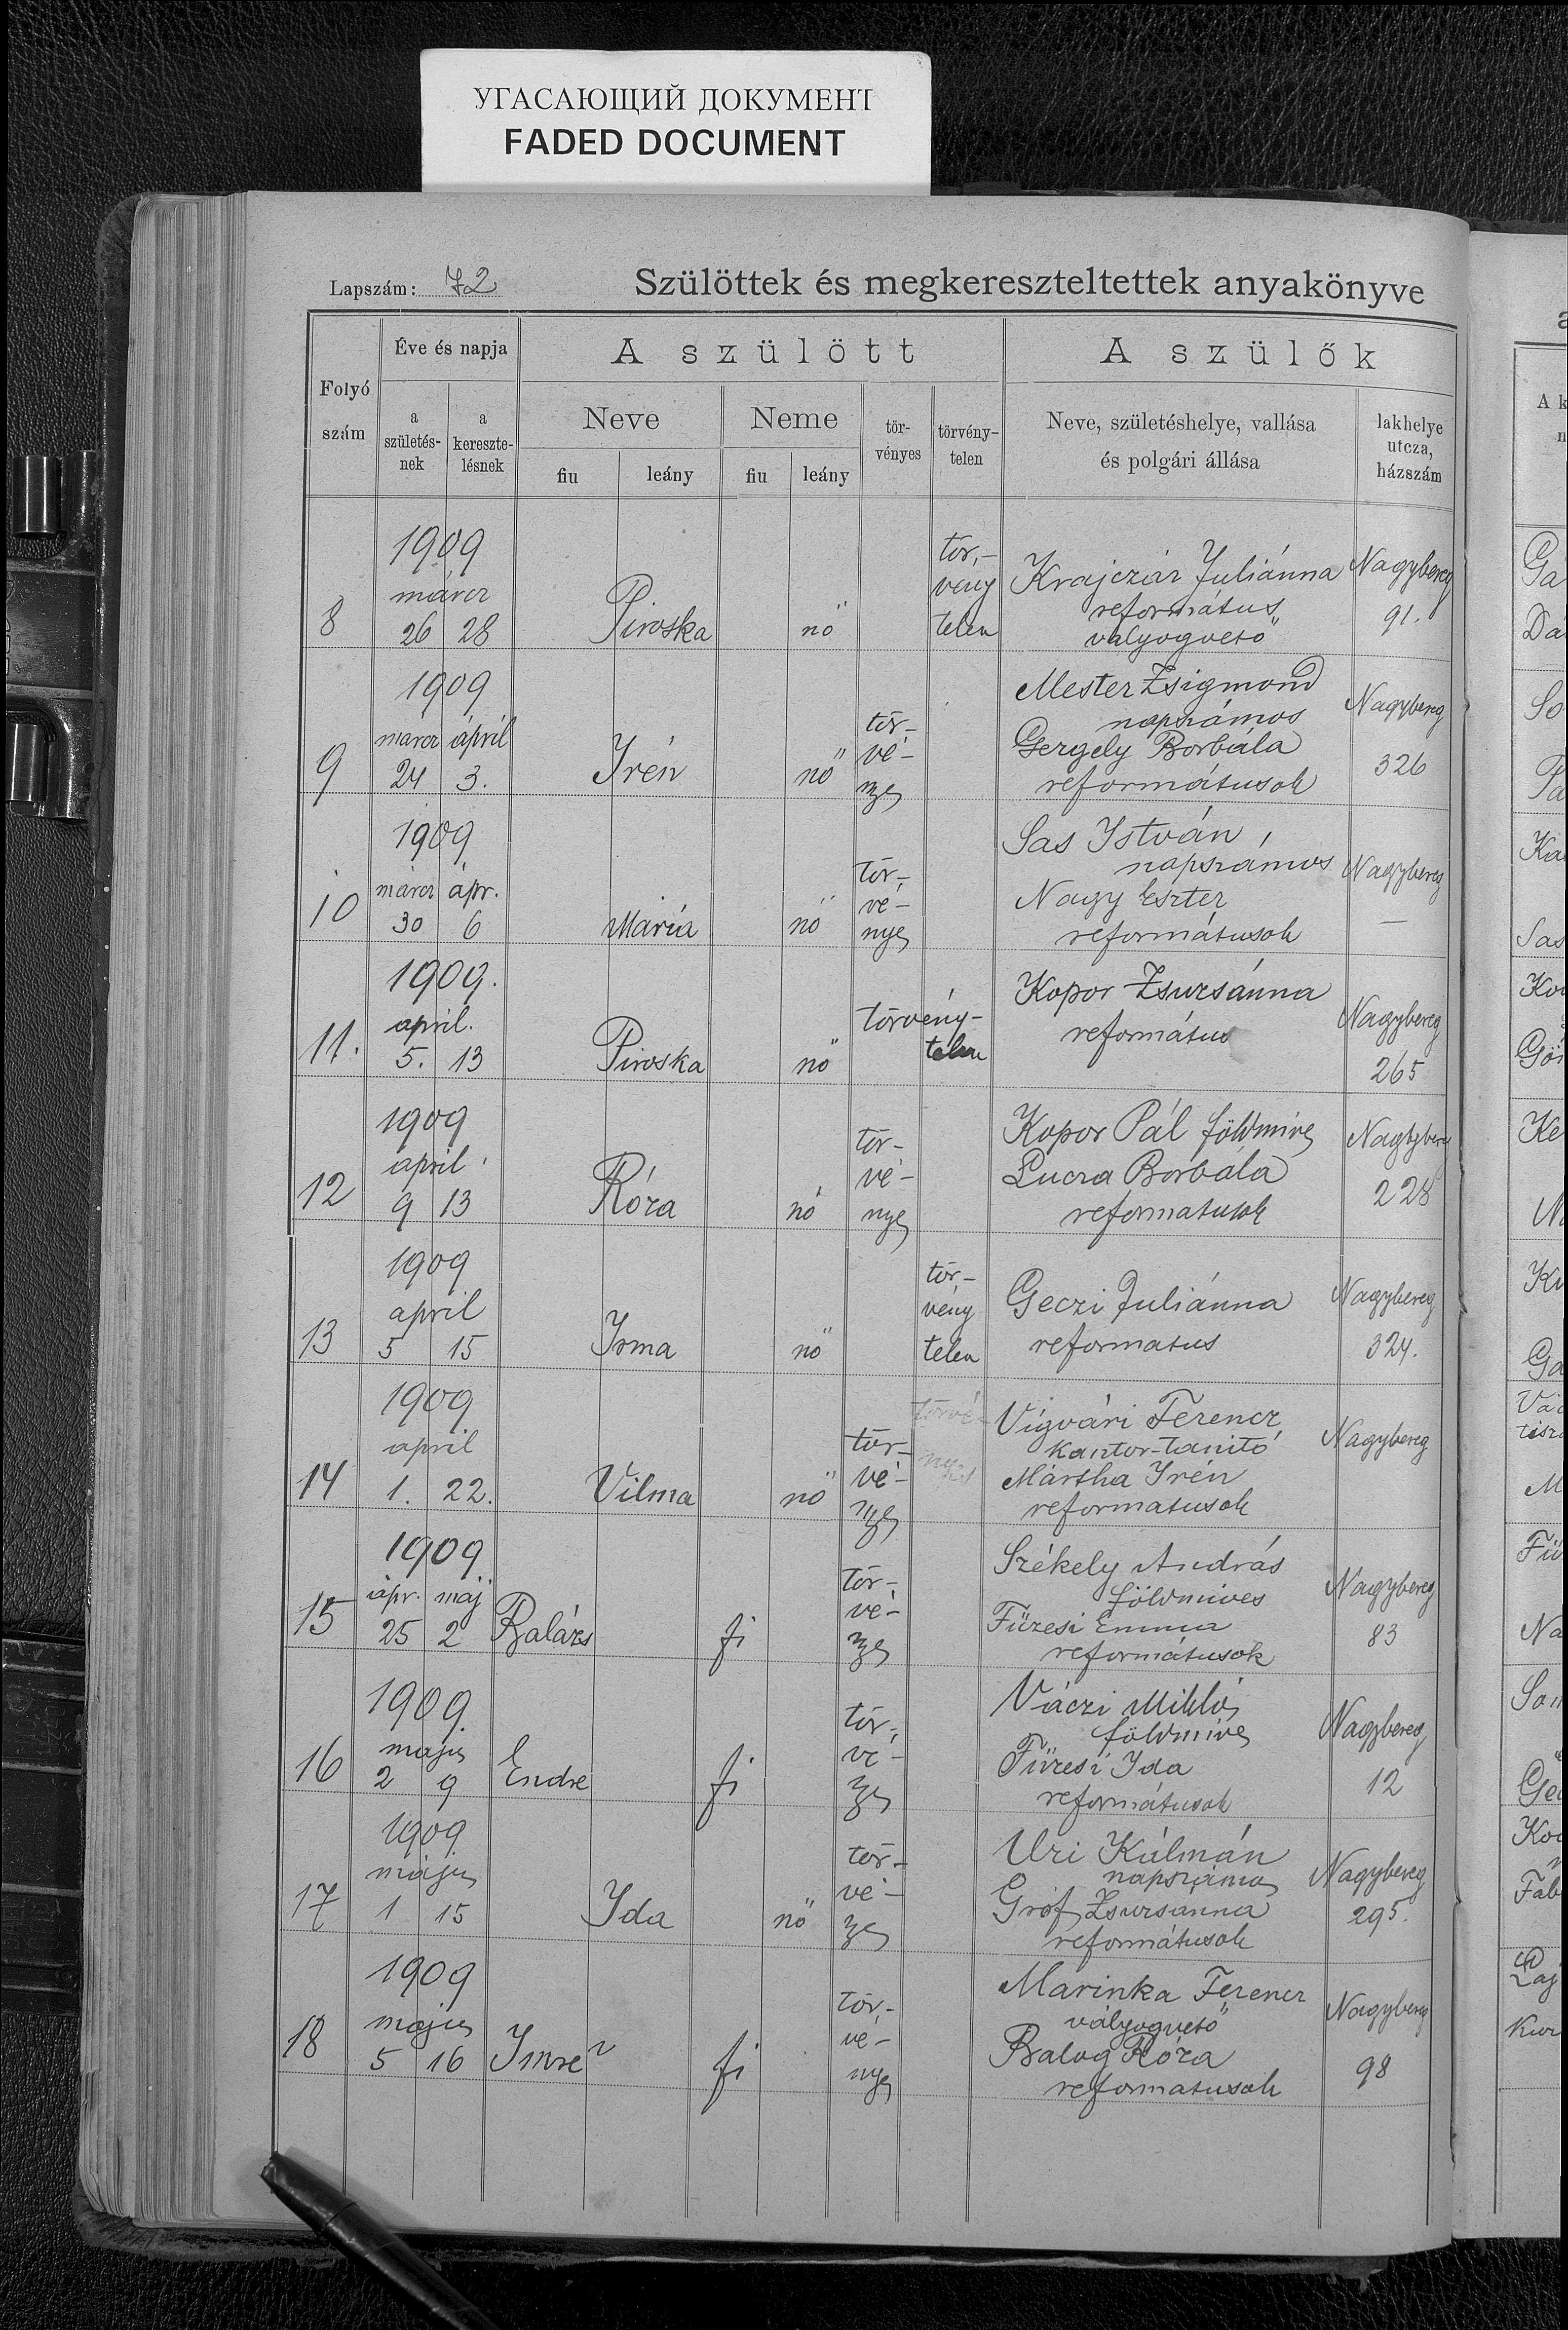 УГАСАЮЩИЙ ДОКУМЕНТ
FADED DOCUMENT
Lapszám: 72
Szülöttek és megkereszteltettek anyakönyve
Folyó szám
Éve és napja
a születés-nek
a keresztelésnek
A szülött
Neve
fiu
leány
Neme
fiu
leány
tör-vényes
törvény-telen
A szülők
Neve, születéshelye, vallása
és polgári állása
lakhelye
utcza,
házszám
8
1909
márcz
26 28
Piroska
nő
tör,-
vény
telen
Krajczár Juliánna
református
vályogvető
Nagybereg
91.
9
1909
márcz ápril
24 3.
Irén
nő
tör-
vé-
nyes
Mester Zsigmond
napszámos
Gergely Borbála
reformátusok
Nagybereg
326
10
1909
márcz ápr.
30 6
Mária
nő
tör-
vé-
nyes
Sas István,
napszámos
Nagy Eszter
reformátusok
Nagybereg
—
11.
1909.
april.
5. 13
Piroska
nő
törvény-
telen
Kopor Zsuzsánna
református
Nagybereg
265
12
1909
april
9 13
Róza
nő
tör-
vé-
nyes
Kopor Pál földmives
Borbála
reformatusok
Nagybereg
228
13
1909
april
5 15
Irma
nő
tör-
vény
telen
Geczi Juliánna
reformatus
Nagybereg
324.
14
1909
april
1. 22.
Vilma
nő
tör-
vé-
nyes
Vígvári Ferencz
kantor-tanitó
Mártha Irén
reformatusok
Nagybereg
15
1909
ápr. maj
25 2
Balázs
fi
tör-
vé-
nyes
Székely András
földmives
Füzesi Emma
reformátusok
Nagybereg
83
16
1909
majus
2 9
Endre
fi
tör-
vé-
nyes
Váczi Miklós
földmives
Füzesi Ida
reformátusok
Nagybereg
12
17
1909
május
1 15
Ida
nő
tör-
vé-
nyes
Uri Kálmán
napszámos
Gróf Zsuzsanna
reformátusok
Nagybereg
295.
18
1909
majus
5 16
Imre
fi
tör-
vé-
nyes
Marinka Ferencz
vályogvető
Balog Róza
reformatusok
Nagybereg
98